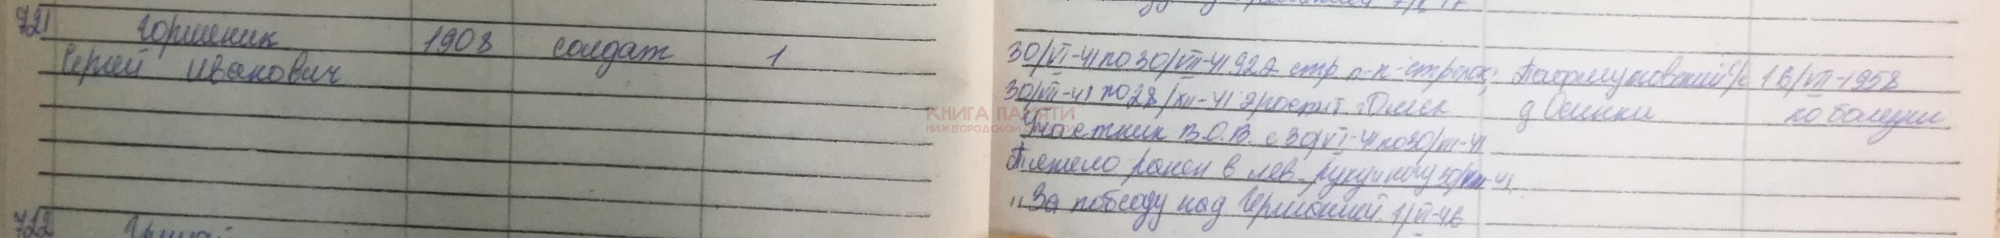 721 Горшеник 1908 солдат 1
Сергей Иванович
30/VI-41 по 30/VII-41 922 стр. п-к - стрелок;
30/VII-41 по 28/XII-41 Эрогоспит. Омск
Участник В.О.В. с 30/VI-41 по 30/VII-41
Тяжело ранен в лев. руку и ногу 30/VII-41
"За победу над Германией 1/VI-46
с/с 16/VII-1958
д Осинки по болезни
КНИГА ПАМЯТИ
НИЖЕГОРОДСКОЙ
722